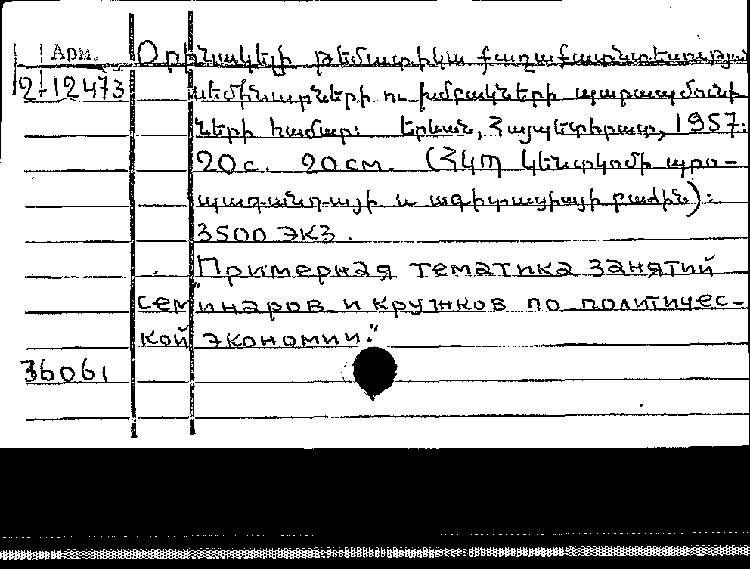 Арм. Օրինակելի թեմատիկա քաղաքատնտեսության
2-12473 սեմինարների ու խմբակների պարապմունք
ների համար: Երևան, Հայպետհրատ, 1957:
20с. 20см. (ՀԿՊ կենտկոմի պրո-
պագանդայի և ագիտացիայի բաժին):
3500 экз.
"Примерная тематика занятий
семинаров и кружков по политичес-
кой экономии."
36061